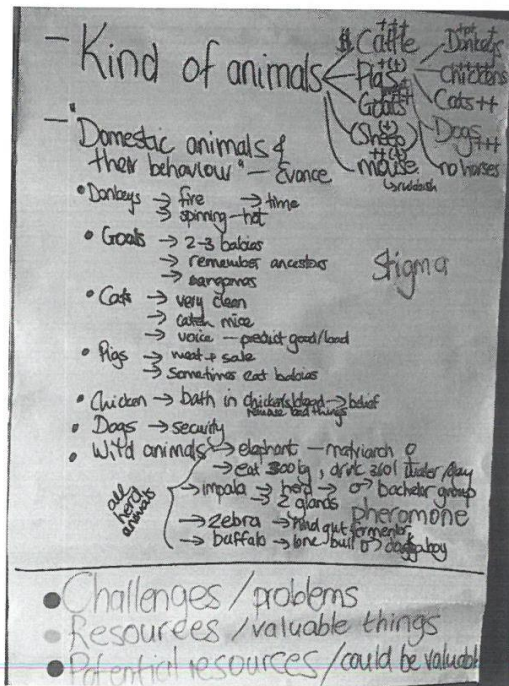 - Kind of animals
$ Cattle +++
Pigs +(+)
Goats +
(Sheep) (+)
mouse ++(+)
↳ rubbish
Donkeys
Chickens
Cats ++
Dogs +++
no horses
- "Domestic animals &
their behaviour" - Evance
• Donkeys → fire → time
→ spinning - hot
• Goats → 2-3 babies
→ remember ancestors
→ sangomas
Stigma
• Cats → very clean
→ catch mice
→ voice - predict good/bad
• Pigs → meat + sale
→ sometimes eat babies
• Chicken → bath in chickens blood → belief
remove bad things
• Dogs → security
• Wild animals → elephant - matriarch
→ eat 300kg, drink 360l water/day
all herd animals
→ impala → herd → ♂ bachelor group
→ 2 glands pheromone
→ zebra → hind gut fermenter
→ buffalo → lone bull ♂ → daggaboy
• Challenges / problems
• Resources / valuable things
• Potential resources / could be valuable